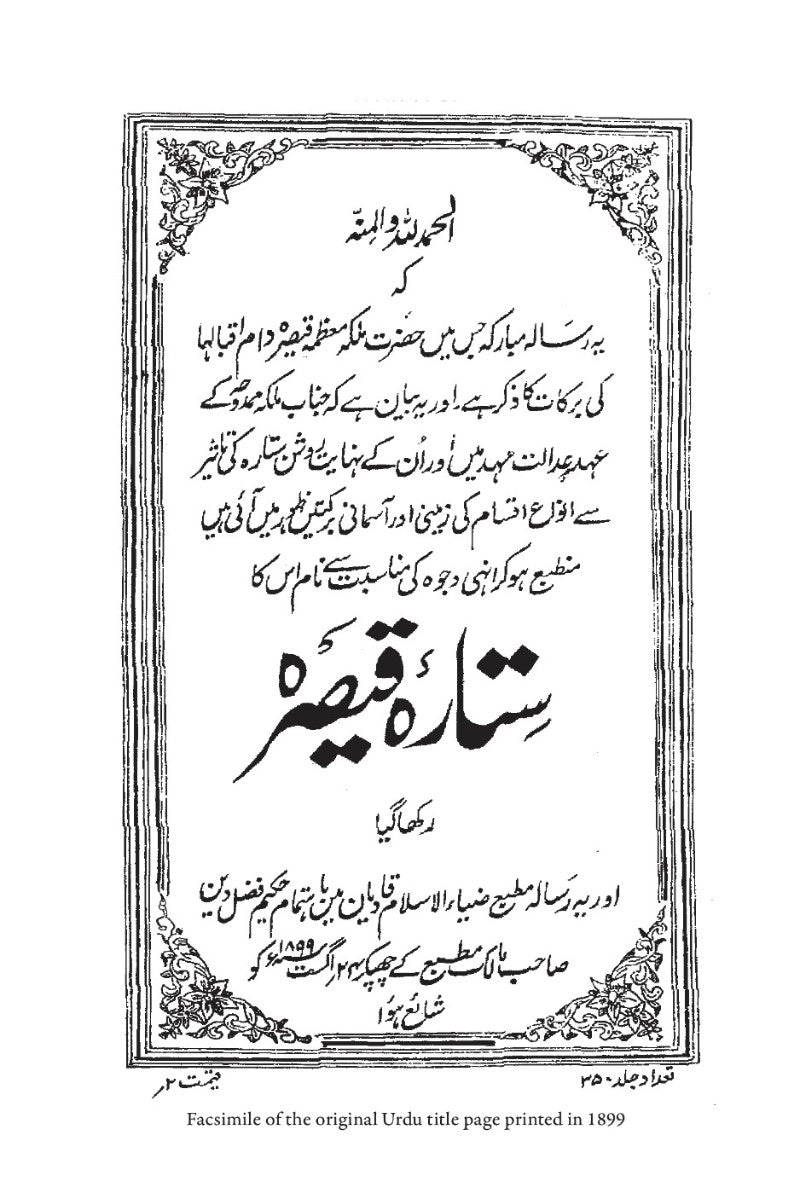 الحمد للہ والمنہ
کہ
یہ رسالہ مبارکہ جس میں حضرت ملکہ معظمہ قیصرہ دام اقبالہا
کی برکات کا ذکر ہے۔ اور یہ بیان ہے کہ جناب ملکہ ممدوحہ کے
عہد عدالت مہد میں اور اُن کے نہایت روشن ستارہ کی تاثیر
سے انواع اقسام کی زمینی اور آسمانی برکتیں ظہور میں آئی ہیں
منطبع ہو کر انہی وجوہ کی مناسبت سے نام اس کا
ستارۂ قیصرہ
رکھا گیا
اور یہ رسالہ مطبع ضیاء الاسلام قادیان میں باہتمام حکیم فضل دین
صاحب مالک مطبع کے چھپکر ۲۴؍ اگست ۱۸۹۹ء کو
شائع ہوا
تعداد جلد ۳۵۰ قیمت ۲؍
Facsimile of the original Urdu title page printed in 1899